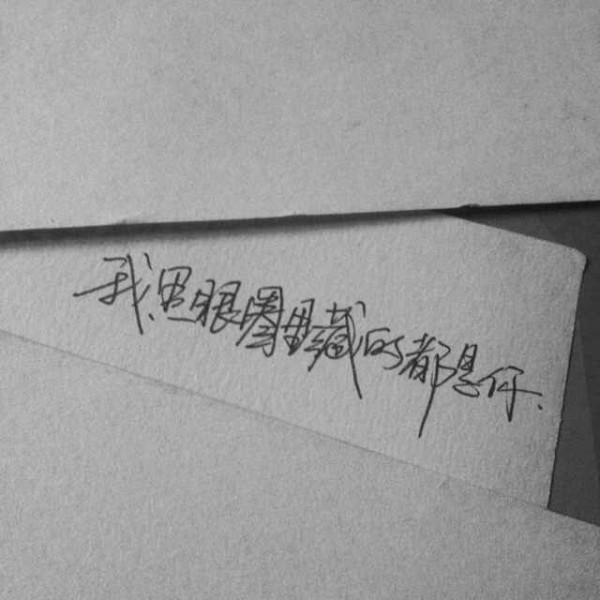 我黑眼圈里藏的都是你.